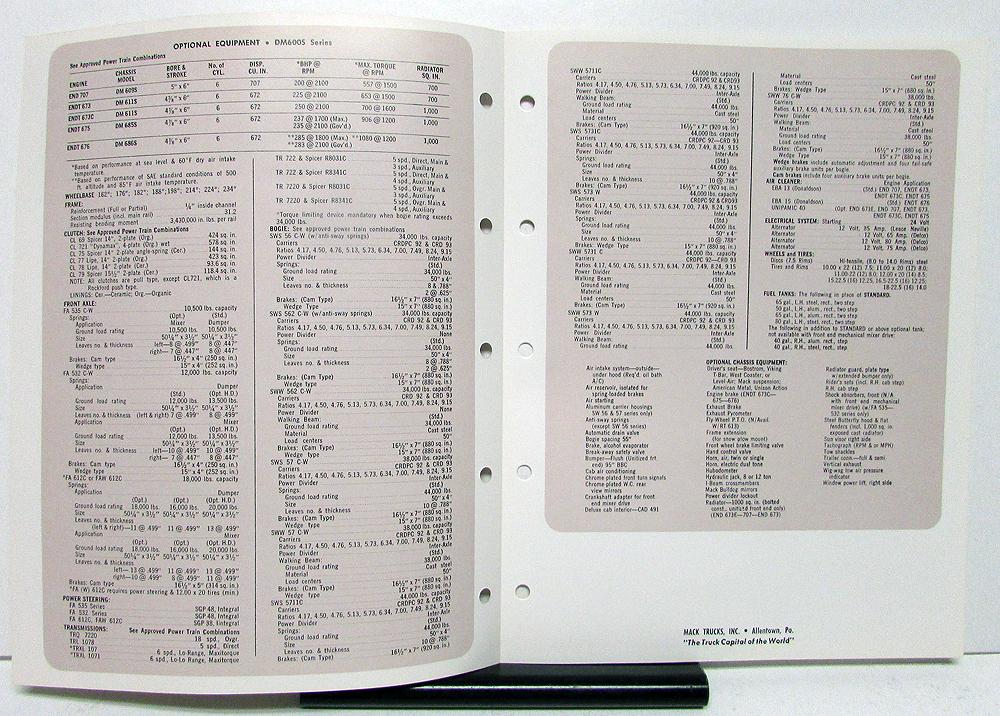 OPTIONAL EQUIPMENT • DM600S Series
See Approved Power Train Combinations
ENGINE CHASSIS MODEL BORE & STROKE No. of CYL. DISP. CU. IN. *BHP @ RPM *MAX. TORQUE @ RPM RADIATOR SQ. IN.
END 707 DM 609S 5" x 6" 6 707 200 @ 2100 557 @ 1500 700
ENDT 673 DM 611S 4⅞" x 6" 6 672 225 @ 2100 653 @ 1500 700
ENDT 673C DM 611S 4⅞" x 6" 6 672 250 @ 2100 700 @ 1600 1,000
ENDT 675 DM 685S 4⅞" x 6" 6 672 237 @ 1700 (Max.) 906 @ 1200 1,000
235 @ 2100 (Gov'd.)
ENDT 676 DM 686S 4⅞" x 6" 6 672 **285 @ 1800 (Max.) **1080 @ 1200 1,000
**283 @ 2100 (Gov'd.)
*Based on performance at sea level & 60°F dry air intake
temperature.
**Based on performance of SAE standard conditions of 500
ft. altitude and 85°F air intake temperature.
WHEELBASE 162"; 176"; 182"; 188"; 198"; 214"; 224"; 234"
FRAME:
Reinforcement (Full or Partial) ¼" inside channel
Section modulus (incl. main rail) 31.2
Resisting bending moment 3,430,000 in. lbs. per rail
CLUTCH: See Approved Power Train Combinations
CL 69 Spicer 14", 2-plate (Org.) 424 sq. in.
CL 721 "Dynamax", 4-plate (Org.) wet 578 sq. in.
CL 75 Spicer 14" 2-plate angle-spring (Cer.) 144 sq. in.
CL 77 Lipe, 14" 2-plate (Org.) 423 sq. in.
CL 78 Lipe, 14" 2-plate (Cer.) 93.6 sq. in.
CL 79 Spicer 15½" 2-plate (Cer.) 118.4 sq. in.
NOTE: All clutches are pull type, except CL721, which is a
Rockford push type.
LININGS: Cer.—Ceramic; Org.—Organic
FRONT AXLE:
FA 535 C-W 10,500 lbs. capacity
Springs: (Opt.) (Std.)
Application Mixer Dumper
Ground load rating 10,500 lbs. 10,500 lbs.
Size 50¼" x 3½" 50¼" x 3½"
Leaves no. & thickness left—8 @ .499" 8 @ .447"
right—7 @ .447" 8 @ .447"
Brakes: Cam type 16½" x 4" (250 sq. in.)
Wedge type 15" x 4" (252 sq. in.)
FA 532 C-W 12,000 lbs. capacity
Springs:
Application Dumper
(Std.) (Opt. H.D.)
Ground load rating 12,000 lbs. 13,500 lbs.
Size 50¼" x 3½" 50¼" x 3½"
Leaves no. & thickness (left & right) 7 @ .499" 8 @ .499"
Application Mixer
(Opt.) (Opt. H.D.)
Ground load rating 12,000 lbs. 13,500 lbs.
Size 50¼" x 3½" 50¼" x 3½"
Leaves no. & thickness left—10 @ .499" 10 @ .499"
right—7 @ .499" 8 @ .499"
Brakes: Cam type 16½" x 4" (250 sq. in.)
Wedge type 15" x 4" (252 sq. in.)
*FA 612C or FAW 612C 18,000 lbs. capacity
Springs:
Application Dumper
(Opt.) (Opt.) (Opt. H.D.)
Ground load rating 18,000 lbs. 16,000 lbs. 20,000 lbs.
Size 50¼" x 3½" 50¼" x 3½" 50¼" x 3½"
Leaves no. & thickness
(left & right)—11 @ .499" 11 @ .499" 13 @ .499"
Application Mixer
(Opt.) (Std.) (Opt. H.D.)
Ground load rating 18,000 lbs. 16,000 lbs. 20,000 lbs.
Size 50¼" x 3½" 50¼" x 3½" 50¼" x 3½"
Leaves no. & thickness
left—13 @ .499" 11 @ .499" 13 @ .499"
right—10 @ .499" 8 @ .499" 11 @ .499"
Brakes: Cam type 16½" x 5" (314 sq. in.)
*FA (W) 612C requires power steering & 12.00 x 20 tires (min.)
POWER STEERING:
FA 535 Series SGP 48, Integral
FA 532 Series SGP 48, Integral
FA 612C, FAW 612C SGP 38, Integral
TRANSMISSIONS: See Approved Power Train Combinations
TRQ 7220 18 spd., Ovgr.
TRL 1078 5 spd., Direct
*TRXL 107 6 spd., Lo-Range, Maxitorque
*TRXL 1071 6 spd., Lo-Lo Range, Maxitorque
TR 722 & Spicer R8031C 5 spd., Direct, Main &
3 spd., Auxiliary
TR 722 & Spicer R8341C 5 spd., Direct, Main &
4 spd., Auxiliary
TR 7220 & Spicer R8031C 5 spd., Ovgr. Main &
3 spd., Auxiliary
TR 7220 & Spicer R8341C 5 spd., Ovgr. Main &
4 spd., Auxiliary
*Torque limiting device mandatory when bogie rating exceeds
34,000 lbs.
BOGIE: See approved power train combinations
SWS 56 C-W (w/anti-sway springs) 34,000 lbs. capacity
Carriers CRDPC 92 & CRD 93
Ratios 4.17, 4.50, 4.76, 5.13, 5.73, 6.34, 7.00, 7.49, 8.24, 9.15
Power Divider Inter-Axle
Springs: (Std.)
Ground load rating 34,000 lbs.
Size 50" x 4"
Leaves & thickness 8 @ .788"
2 @ .625"
Brakes: (Cam Type) 16½" x 7" (880 sq. in.)
Wedge Type 15" x 7" (880 sq. in.)
SWS 562 C-W (w/anti-sway springs) 34,000 lbs. capacity
Carriers CRD 92 & CRD 93
Ratios 4.17, 4.50, 4.76, 5.13, 5.73, 6.34, 7.00, 7.49, 8.24, 9.15
Power Divider None
Springs: (Std.)
Ground load rating 34,000 lbs.
Size 50" x 4"
Leaves no. & thickness 8 @ .788"
2 @ .625"
Brakes: (Cam Type) 16½" x 7" (880 sq. in.)
Wedge Type 15" x 7" (880 sq. in.)
SWW 562 C-W 34,000 lbs. capacity
Carriers CRD 92 & CRD 93
Ratios 4.17, 4.50, 4.76, 5.13, 5.73, 6.34, 7.00, 7.49, 8.24, 9.15
Power Divider None
Walking Beam: (Std.)
Ground load rating 34,000 lbs.
Material Cast steel
Load centers 50"
Brakes: (Cam Type) 16½" x 7" (880 sq. in.)
Wedge Type 15" x 7" (880 sq. in.)
SWS 57 C-W 44,000 lbs. capacity
Carriers CRDPC 92 & CRD 93
Ratios 4.17, 4.50, 4.76, 5.13, 5.73, 6.34, 7.00, 7.49, 8.24, 9.15
Power Divider Inter-Axle
Springs: (Std.)
Ground load rating 44,000 lbs.
Size 50" x 4"
Leaves no. & thickness 10 @ .788"
Brakes: (Cam Type) 16½" x 7" (880 sq. in.)
Wedge Type 15" x 7" (880 sq. in.)
SWW 57 C-W 38,000 lbs. capacity
Carriers CRDPC 92 & CRD 93
Ratios 4.17, 4.50, 4.76, 5.13, 5.73, 6.34, 7.00, 7.49, 8.24, 9.15
Power Divider Inter-Axle
Walking Beam: (Std.)
Ground load rating 38,000 lbs.
Material Cast steel
Load centers 50"
Brakes: (Cam Type) 16½" x 7" (880 sq. in.)
Wedge Type 15" x 7" (880 sq. in.)
SWS 5711C 44,000 lbs. capacity
Carriers CRDPC 92 & CRD 93
Ratios 4.17, 4.50, 4.76, 5.13, 5.73, 6.34, 7.00, 7.49, 8.24, 9.15
Power Divider Inter-Axle
Springs: (Std.)
Ground load rating 44,000 lbs.
Size 50" x 4"
Leaves no. & thickness 10 @ .788"
Brakes: (Cam Type) 16½" x 7" (920 sq. in.)
SWW 5711C 44,000 lbs. capacity
Carriers CRDPC 92 & CRD 93
Ratios 4.17, 4.50, 4.76, 5.13, 5.73, 6.34, 7.00, 7.49, 8.24, 9.15
Power Divider Inter-Axle
Walking Beam: (Std.)
Ground load rating 44,000 lbs.
Material Cast steel
Load centers 50"
Brakes: (Cam Type) 16½" x 7" (920 sq. in.)
SWS 5731C 44,000 lbs. capacity
Carriers CRDPC 92—CRD 93
Ratios 4.17, 4.50, 4.76, 5.13, 5.73, 6.34, 7.00, 7.49, 8.24, 9.15
Power Divider Inter-Axle
Springs: (Std.)
Ground load rating 44,000 lbs.
Size 50" x 4"
Leaves no. & thickness 10 @ .788"
Brakes: (Cam Type) 16½" x 7" (920 sq. in.)
SWS 573 W 44,000 lbs. capacity
Carriers CRDPC 92—CRD 93
Ratios 4.17, 4.50, 4.76, 5.13, 5.73, 6.34, 7.00, 7.49, 8.24, 9.15
Power Divider Inter-Axle
Springs: (Std.)
Ground load rating 44,000 lbs.
Size 50" x 4"
Leaves no. & thickness 10 @ .788"
Brakes: Wedge Type 15" x 7" (880 sq. in.)
SWW 5731 C 44,000 lbs. capacity
Carriers CRDPC 92—CRD 93
Ratios 4.17, 4.50, 4.76, 5.13, 5.73, 6.34, 7.00, 7.49, 8.24, 9.15
Power Divider Inter-Axle
Walking Beam: (Std.)
Ground load rating 44,000 lbs.
Material Cast steel
Load centers 50"
Brakes: (Cam Type) 16½" x 7" (920 sq. in.)
SWW 573 W 44,000 lbs. capacity
Carriers CRDPC 92 & CRD 93
Ratios 4.17, 4.50, 4.76, 5.13, 5.73, 6.34, 7.00, 7.49, 8.24, 9.15
Power Divider Inter-Axle
Walking Beam: (Std.)
Ground load rating 44,000 lbs.
Material Cast steel
Load centers 50"
Brakes: Wedge Type 15" x 7" (880 sq. in.)
SWW 76 C-W 38,000 lbs.
Carriers CRDPC 92 & CRD 93
Ratios 4.17, 4.50, 4.76, 5.13, 5.73, 6.34, 7.00, 7.49, 8.24, 9.15
Power Divider Inter-Axle
Walking Beam: (Std.)
Ground load rating 38,000 lbs.
Material Cast steel
Load centers 50"
Brakes: (Cam Type) 16½" x 7" (880 sq. in.)
Wedge Type 15" x 7" (880 sq. in.)
Wedge brakes include automatic adjustment and four fail-safe
auxiliary brake units per bogie.
Cam brakes include four auxiliary brake units per bogie.
AIR CLEANER: Engine Application
EBA 13 (Donaldson) (Std.) END 707, ENDT 673,
ENDT 673C, ENDT 675
EBA 15 (Donaldson) (Std.) ENDT 676
UNIPANIC 40 (Opt. END 707, END 673,
ENDT 673C, ENDT 675
ELECTRICAL SYSTEM: Starting 24 Volt
Alternator 12 Volt, 85 Amp. (Leece Neville)
Alternator 12 Volt, 65 Amp. (Delco)
Alternator 12 Volt, 80 Amp. (Delco)
Alternator 12 Volt, 75 Amp. (Delco)
WHEELS AND TIRES:
Discs (7.5 Rims) Hi-tensile, (8.0 to 14.0 Rims) steel
Tires and Rims 10.00 x 22 (12) 7.5; 11.00 x 20 (12) 8.0;
11.00-22 (12) 8.0; 12.00 x 20 (14) 8.5;
15-22.5 (16) 12.25; 16.5-22.5 (16) 12.25;
18-22.5 (16) 14.0
FUEL TANKS: The following in place of STANDARD.
65 gal., L.H., steel, rect., two step
50 gal., L.H. steel, rect., two step
65 gal., L.H. alum., rect., two step
80 gal., L.H. steel, rect., two step
The following in addition to STANDARD or above optional tank;
not available with front end mechanical mixer drive:
40 gal., R.H., alum., rect., two step
40 gal., R.H., steel, rect., two step
OPTIONAL CHASSIS EQUIPMENT:
Air intake system—outside—
under hood (Req'd. oil bath
A/C)
Air reservoir, isolated for
spring-loaded brakes
Air starting
Aluminum carrier housings
(SW 56 & 57 series only)
Anti-sway springs
(except SW 56 series)
Automatic drain valve
Bogie spacing 55"
Brake, alcohol evaporator
Break-away safety valve
Bumper—Flush (Unitized frt.
end) 95" BBC
Cab air conditioning
Chrome plated front turn signals
Chrome plated W.C. rear
view mirrors
Crankshaft adapter for front
end mixer drive
Deluxe cab interior—CAD 491
Driver's seat—Bostrom, Viking
T-Bar, West Coaster, or
Level-Air; Mack suspension;
American Metal, Unison Action
Engine brake (ENDT 673C—
675—676)
Exhaust Brake
Exhaust Pyrometer
Fly-Wheel P.T.O. (N/Avail.
W/RT 613)
Frame extension
(for snow plow mount)
Front wheel brake limiting valve
Hand control valve
Horn, air, twin or single
Horn, electric dual tone
Hubodometer
Hydraulic jack, 8 or 12 ton
I-Beam crossmembers
Mack Bulldog mirrors
Power divider lockout
Radiator—1000 sq. in. (bolted
const., unitized front end only)
(END 673E—707—END 673)
Radiator guard, plate type
w/extended bumper only)
Rider's sets (incl. R.H. cab step)
R.H. cab step
Shock absorbers, front (N/A
with front end mechanical
mixer drive) (w/FA 535—
532 series only)
Steel Butterfly hood & flat
fenders (incl 1,000 sq. in.
exposed cast radiator)
Sun visor right side
Tachograph (RPM or MPH)
Tow shackles
Trailer conn.—full & semi
Vertical exhaust
Wig-wag low air pressure
indicator
Window power lift, right side
MACK TRUCKS, INC. • Allentown, Pa.
"The Truck Capital of the World"